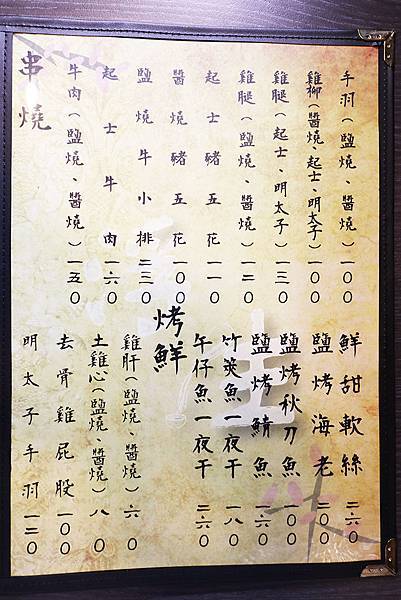 串燒
牛肉(鹽燒、醬燒)一五〇
起士牛肉一六〇
鹽燒牛小排二三〇
醬燒豬五花一〇〇
起士豬五花一一〇
雞腿(鹽燒、醬燒)一二〇
雞腿(起士、明太子)一三〇
雞柳(醬燒、起士、明太子)一〇〇
手羽(鹽燒、醬燒)一〇〇
明太子手羽一二〇
去骨雞屁股一〇〇
土雞心(鹽燒、醬燒)八〇
雞肝(鹽燒、醬燒)六〇
烤鮮
午仔魚一夜干二六〇
竹莢魚一夜干一八〇
鹽烤鯖魚一六〇
鹽烤秋刀魚一〇〇
鹽烤海老二〇〇
鮮甜軟絲二六〇